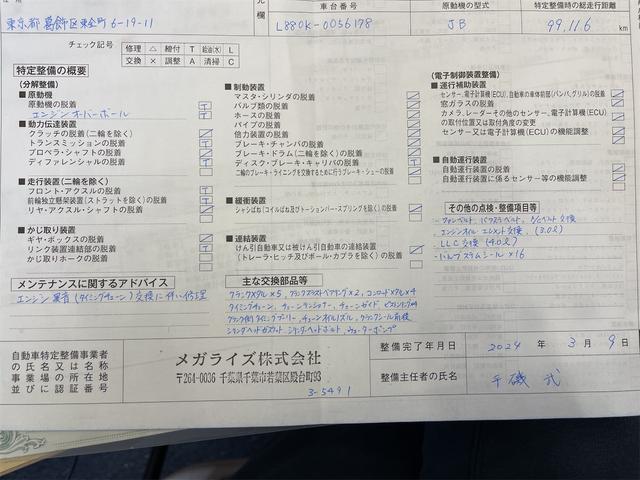 東京都葛飾区東金町6-19-11
欄
車台番号
L880K-0056178
原動機の型式
JB
特定整備時の総走行距離
99,116 km
チェック記号
修理 △ 締付 T 給油(水) L
交換 × 調整 A 清掃 C
特定整備の概要
(分解整備)
■原動機
原動機の脱着 T
エンジンオーバーホール
■動力伝達装置
クラッチの脱着(二輪を除く)
トランスミッションの脱着 T
プロペラ・シャフトの脱着
ディファレンシャルの脱着 T
■走行装置(二輪を除く)
フロント・アクスルの脱着
前輪独立懸架装置(ストラットを除く)の脱着 T
リヤ・アクスル・シャフトの脱着
■かじ取り装置
ギヤ・ボックスの脱着
リンク装置連結部の脱着 T
かじ取りホークの脱着
■制動装置
マスタ・シリンダの脱着
バルブ類の脱着
ホースの脱着
パイプの脱着
倍力装置の脱着
ブレーキ・チャンバの脱着
ブレーキ・ドラム(二輪を除く)の脱着
ディスク・ブレーキ・キャリパの脱着 T
二輪のブレーキ・ライニングを交換するために行うブレーキ・シューの脱着
■緩衝装置
シャシばね(コイルばね及びトーションバー・スプリングを除く)の脱着
■連結装置
けん引自動車又は被けん引自動車の連結装置
(トレーラ・ヒッチ及びボール・カプラを除く)の脱着
(電子制御装置整備)
■運行補助装置
センサー、電子計算機(ECU)、自動車の車体前部(バンパ、グリル)の脱着
窓ガラスの脱着
カメラ、レーダーその他のセンサー、電子計算機(ECU)
の取付位置又は取付角度の変更
センサー又は電子計算機(ECU)の機能調整
■自動運行装置
自動運行装置の脱着
自動運行装置に係るセンサー等の機能調整
その他の点検・整備項目等
・ファンベルト、パワステベルト、 交換
・エンジンオイル エレメント交換 (3.0ℓ)
・LLC交換 (4.0ℓ)
・バルブステムシール×16
メンテナンスに関するアドバイス
エンジン異音(タイミングチェーン)交換に伴い修理
主な交換部品等
クランクメタル×5, クランクスラストベアリング×2, コンロッドメタル×4
タイミングチェーン, チェーンテンショナー, チェーンガイド, ピストンリング×4
クランク側タイミングプーリー, チェーンオイルノズル, クランクシール前後
シリンダヘッドガスケット シリンダヘッドボルト ウォーターポンプ
自動車特定整備事業者
の氏名又は名称
事業場の所在地
並びに認証番号
メガライズ株式会社
〒264-0036 千葉県千葉市若葉区殿台町93
3-5491
整備完了年月日 2024 年 3 月 9 日
整備主任者の氏名 千磯 武